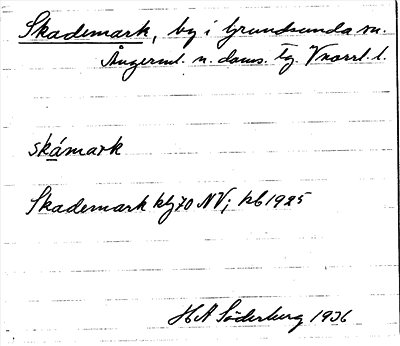 Skademark, by i Grundsunda sn.
Ångerml. n. doms. tg. Vnorrl. l.
skámark
Skademark hfg 70 NV; kb 1925
H A Söderberg 1936